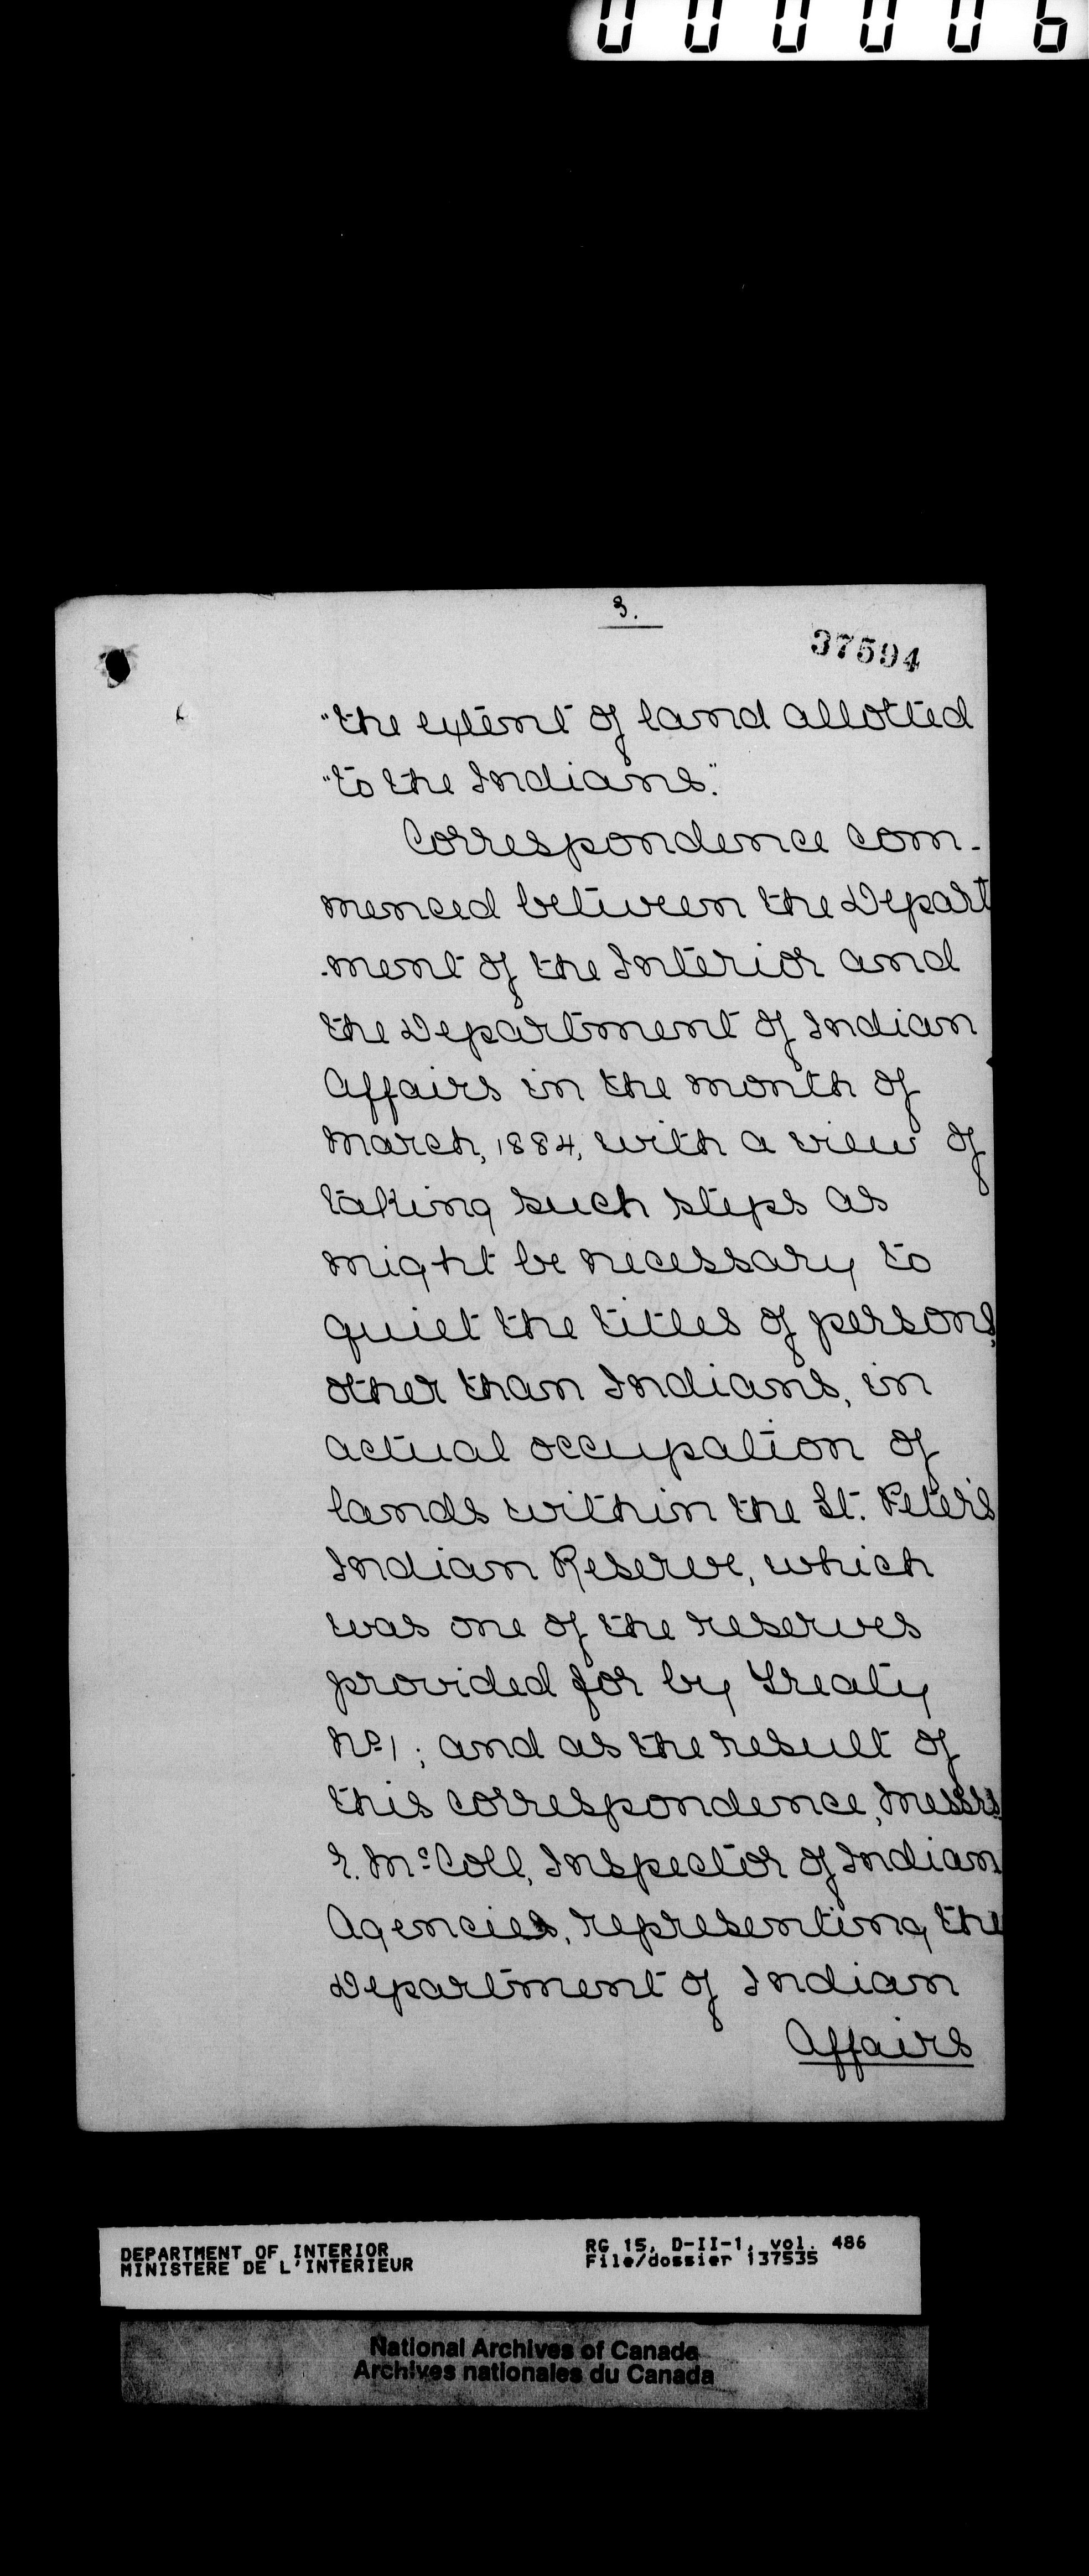 000006
3.
37594
"the extent of land allotted
"to the Indians."
Correspondence com-
menced between the Depart
-ment of the Interior and
the Department of Indian
Affairs in the month of
March, 1884, with a view of
taking such steps as
might be necessary to
quiet the titles of persons,
other than Indians, in
actual occupation of
lands within the St. Peter's
Indian Reserve, which
was one of the reserves
provided for by Treaty
No 1; and as the result of
this correspondence, Messrs.
E. McColl, Inspector of Indian
Agencies, representing the
Department of Indian
Affairs
DEPARTMENT OF INTERIOR
MINISTERE DE L'INTERIEUR
RG 15, D-II-1, vol. 486
File/dossier 137535
National Archives of Canada
Archives nationales du Canada